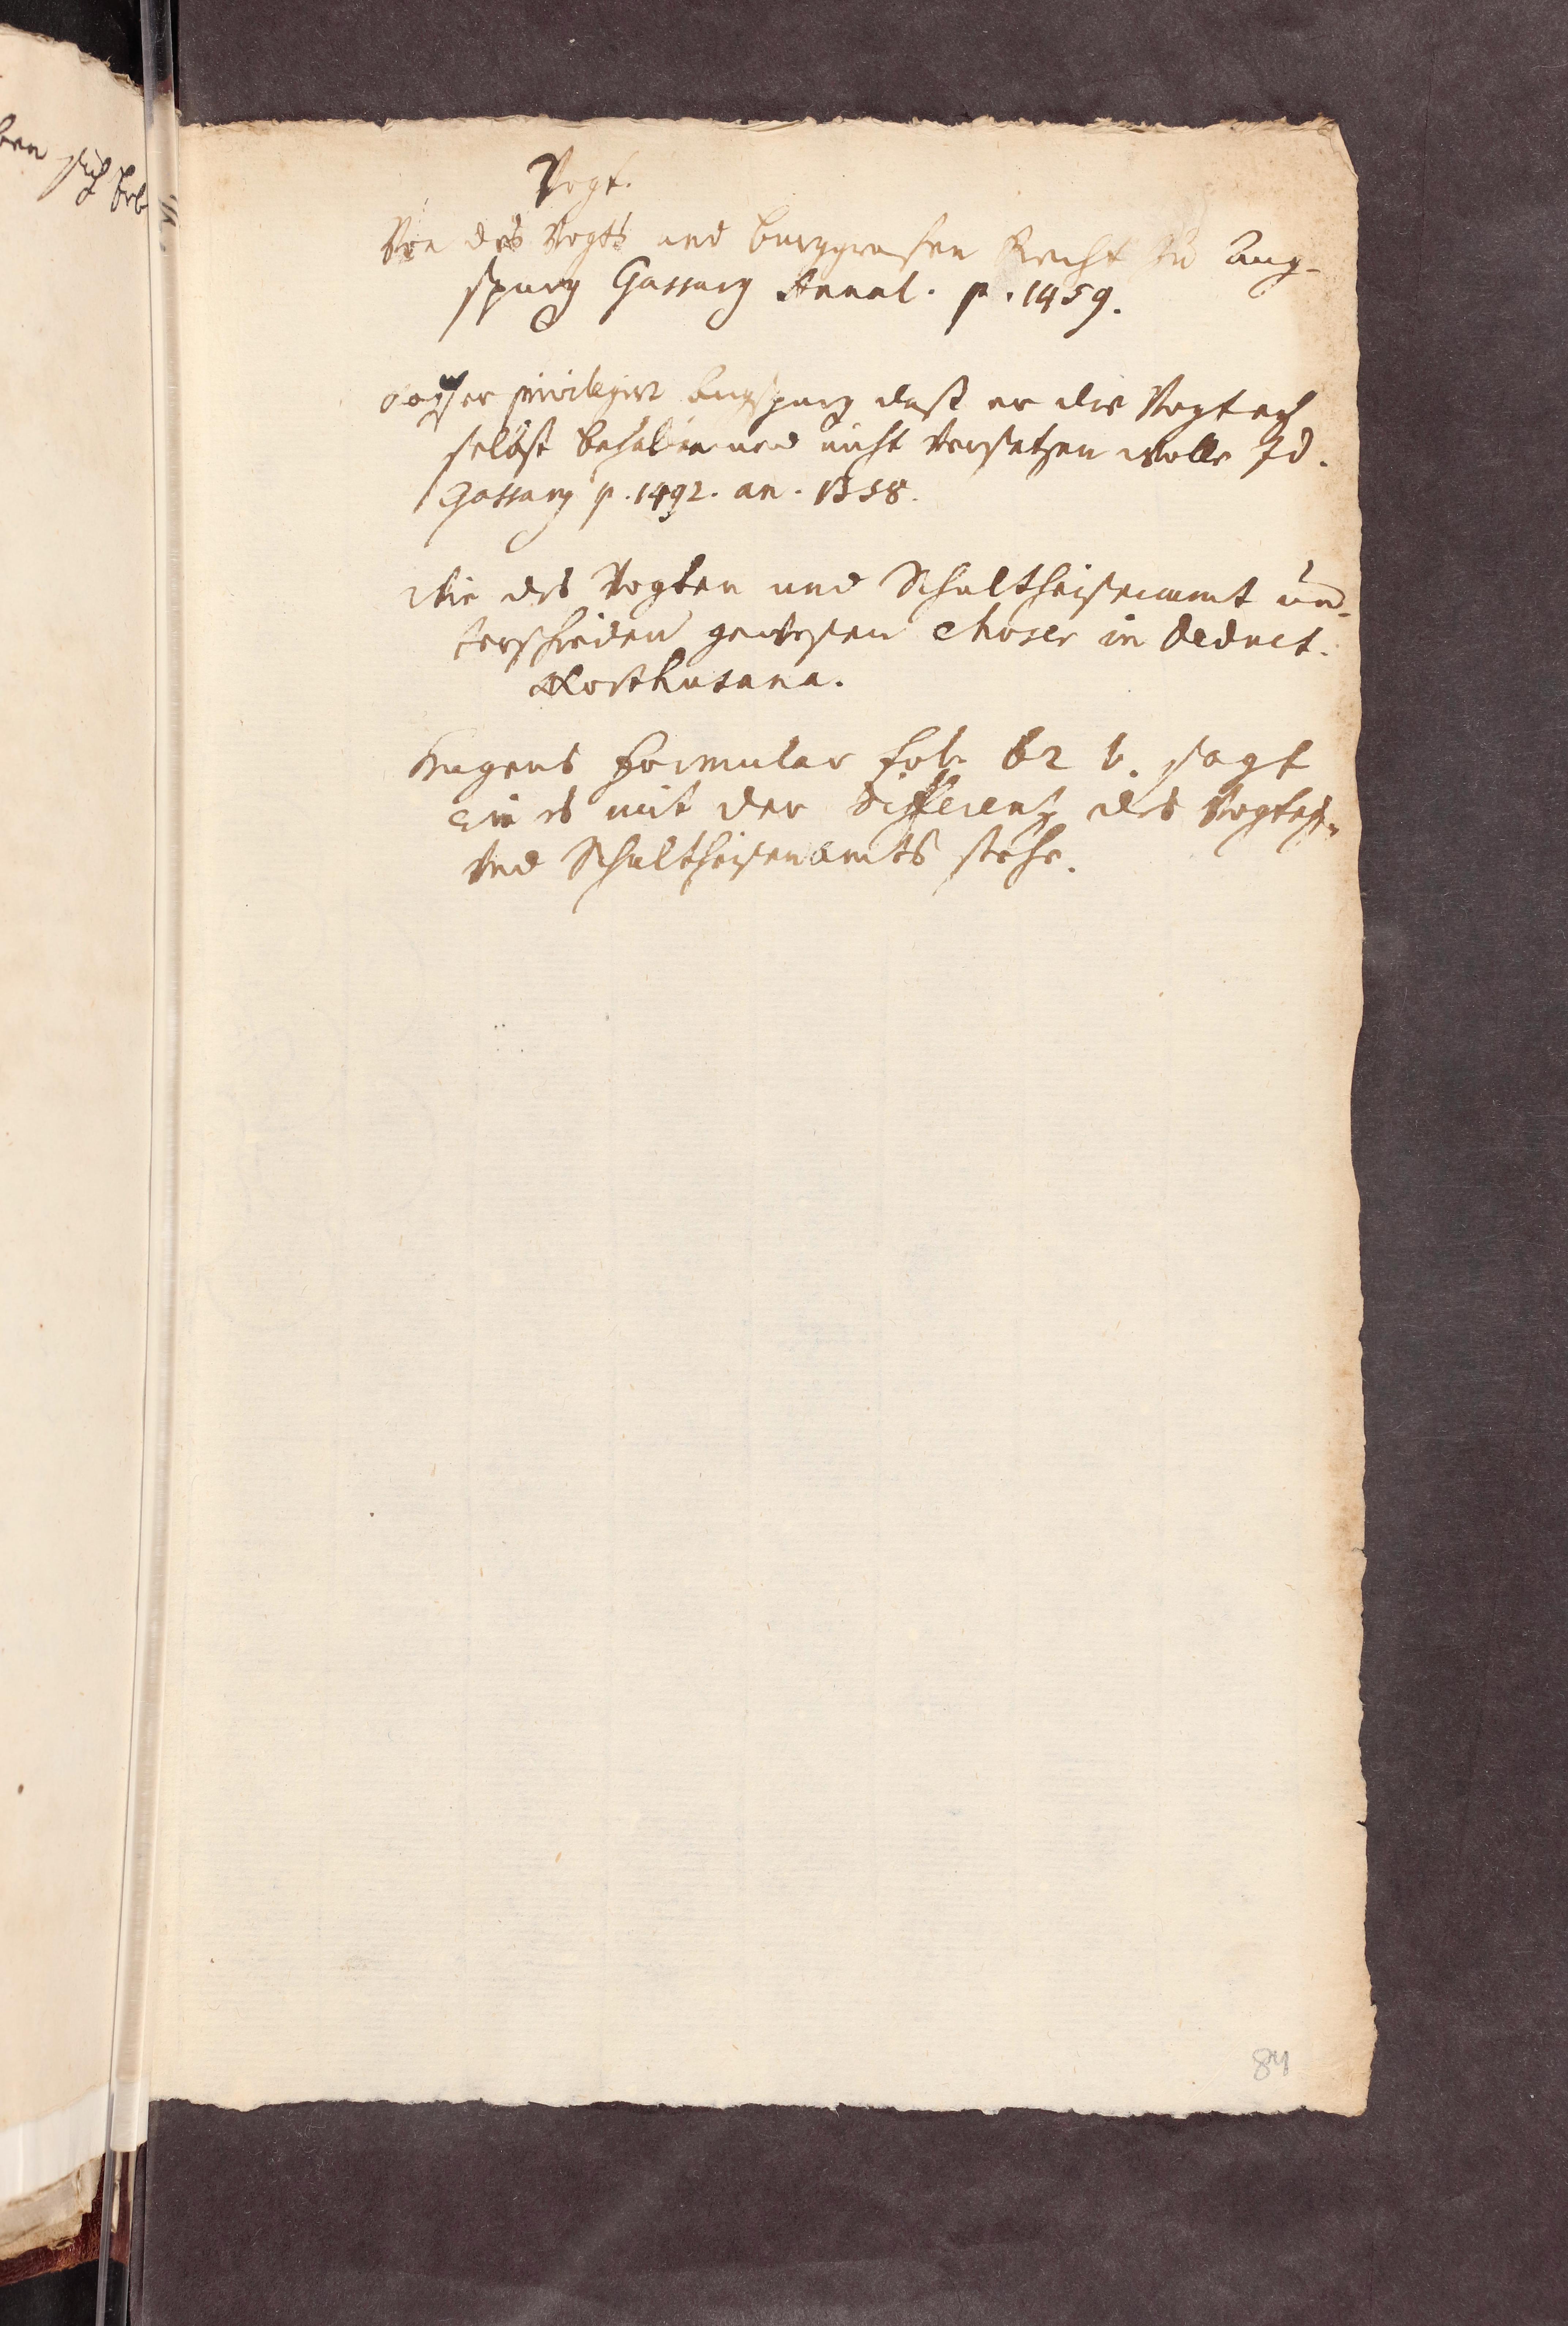 Vogt.
Von des Vogts und burggrafen Recht zu Aug-
spurg Gassarg Annal. p. 1459.
Kayser privilegirt Augspurg daß er die Vogtey
selbst behalten und nicht versetzen wolle Id.
Gassarg p. 1492. an. 1358.
Wie des Vogten und Schultheisenamt un-
terschieden gewesen Moser in Deduct.
Northusana.
Hugens Formular fol. 62 b. sagt
wie es mit der Differentz des Vogtey-
und Schultheisenamts stehe.
84